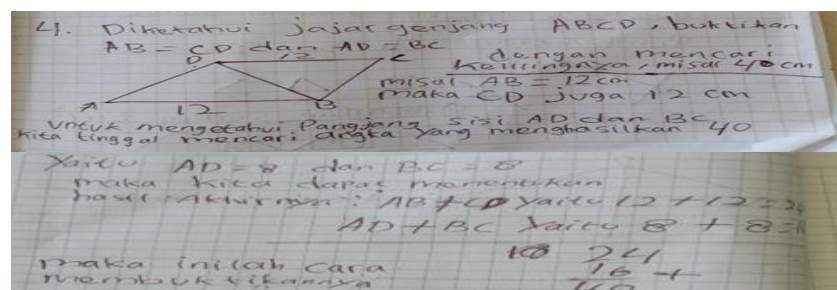 4. Diketahui jajargenjang ABCD, buktikan
AB = CD dan AD = BC
dengan mencari
kelilingnya, misal 40 cm
D 12 C
misal AB = 12 cm
maka CD juga 12 cm
A 12 B
Untuk mengetahui Panjang sisi AD dan BC
kita tinggal mencari angka yang menghasilkan 40
Yaitu AD = 8 dan BC = 8
maka kita dapat menentukan
hasil akhirnya : AB + CD yaitu 12 + 12 = 24
AD + BC yaitu 8 + 8 =
24
maka inilah cara
16 +
membuktikannya
40